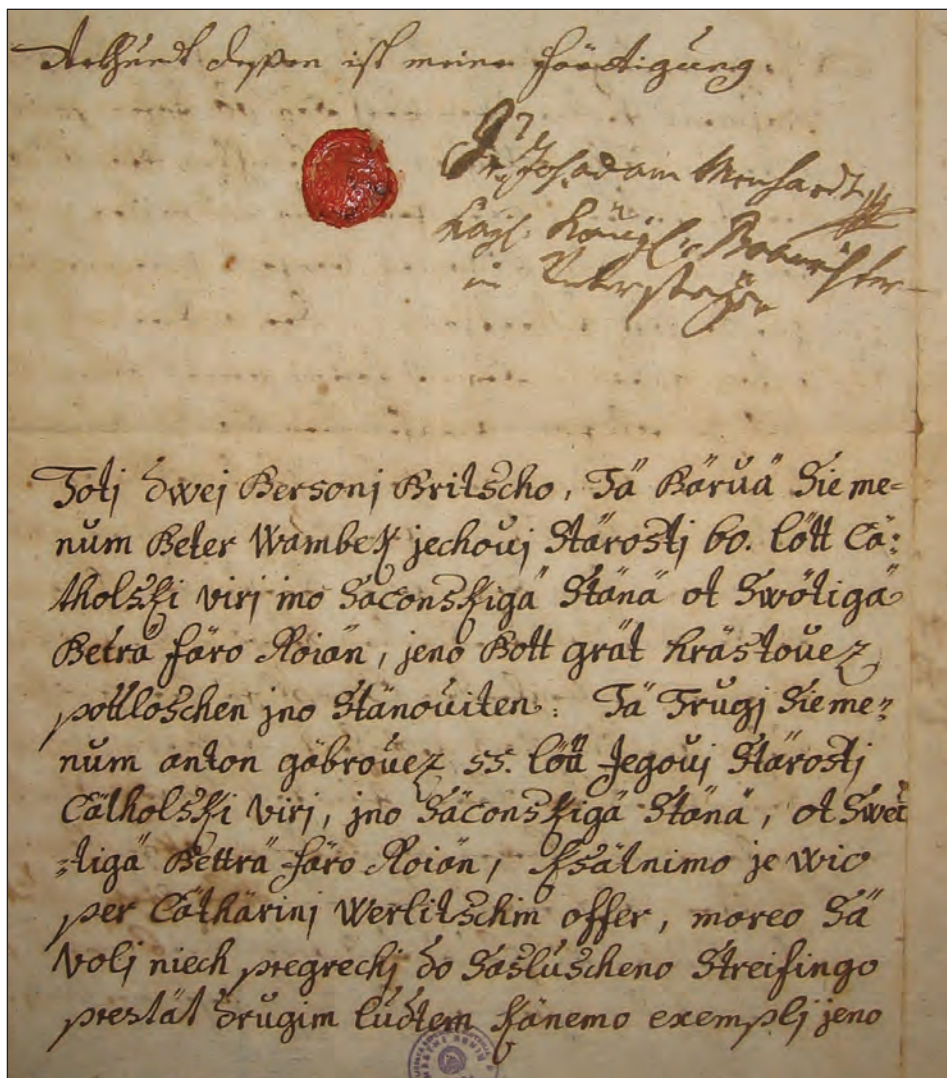 dessen ist meine förttigung.
Joh. adam Menhardt
Kayl. Königl. Banrichter
in
Totj dwej Bersonj Britscho, Tä Bärvä Sieme-
num Beter Wambek jechovj Stärostj 60. lött Cä:
tholski virj ino Säconskigä Stänä ot Swötigä
Beträ färo Roiän, jeno Bott grät Krästovez
pottloschen jno Stänoviten: Tä Trugj Sieme-
num anton gäbrovez 55. lött Jegovj Stärostj
Cätholski virj, jno Säconskigä Stänä, ot Swei
-tigä Betträ färo Roiän, Ksätnimo je wic
per Cäthärinj Werlitschim offer, moreo Sä
volj niech pregrechj do Säslüscheno Streifingo
prestät drugim lüdtem Känemo exemplj jeno